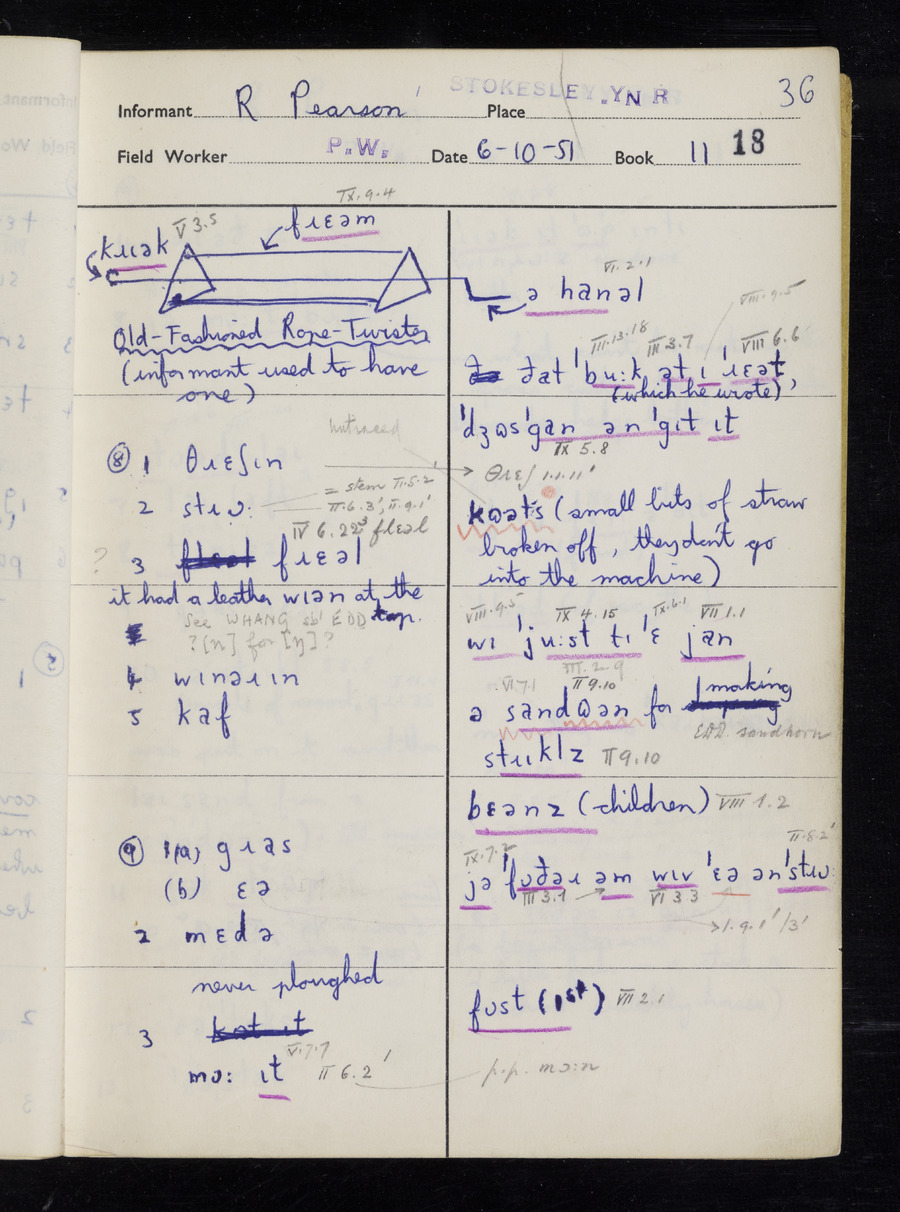 STOKESLEY. Y N R
36
Informant R Pearson Place
Field Worker P.W. Date 6-10-51 Book 11 18
IX.9.4
V 3.5
fɹɛəm
kɹɛak
VI.2.1
ə hanəl
Old-Fashioned Rope-Twister
(informant used to have
one)
VIII.9.5
III.13.18 III 3.7 VIII 6.6
ðat ˈbu:k ət ɪ ˈɹɛət
(which he wrote)
ˈdʒɷsˈgan ən ˈgɪt ɪt
IX 5.8
untraced
⑧ 1 θɹɛʃɪn
→ θɹɛʃ 1.1.11'
= stem II.5.2
2 stɹɷ:
II.6.3', II.9.1'
IV 6.22³ fleəl
? 3 fɹɛəl
it had a leather wɪən at the
top.
See WHANG sb¹ EDD
?[n] for [ŋ]?
4 wɪnəɹɪn
5 kaf
kɷəts (small bits of straw
broken off, they don't go
into the machine)
VIII.9.5 IX 4.15 IX.6.1 VII 1.1
wɪ ˈju:st tɪ ˈɛ jan
III.2.9
VI 7.1 II 9.10
ə sandɷən for making
EDD. sandhorn
stɹɪklz II 9.10
bɛənz (children) VIII 1.2
II.8.2'
⑨ 1(a) gɹəs
(b) ɛə
2 mɛdə
IX.7.2
jə ˈfɷðəɹ əm wɪv ˈɛə ən ˈstɹɷ:
III 3.1 VI 3 3
→ 1.9.1'/3'
never ploughed
3
V.7.7
mɔ: ɪt II 6.2'
fɷst (1st) VII 2.1
p.p. mɔ:n